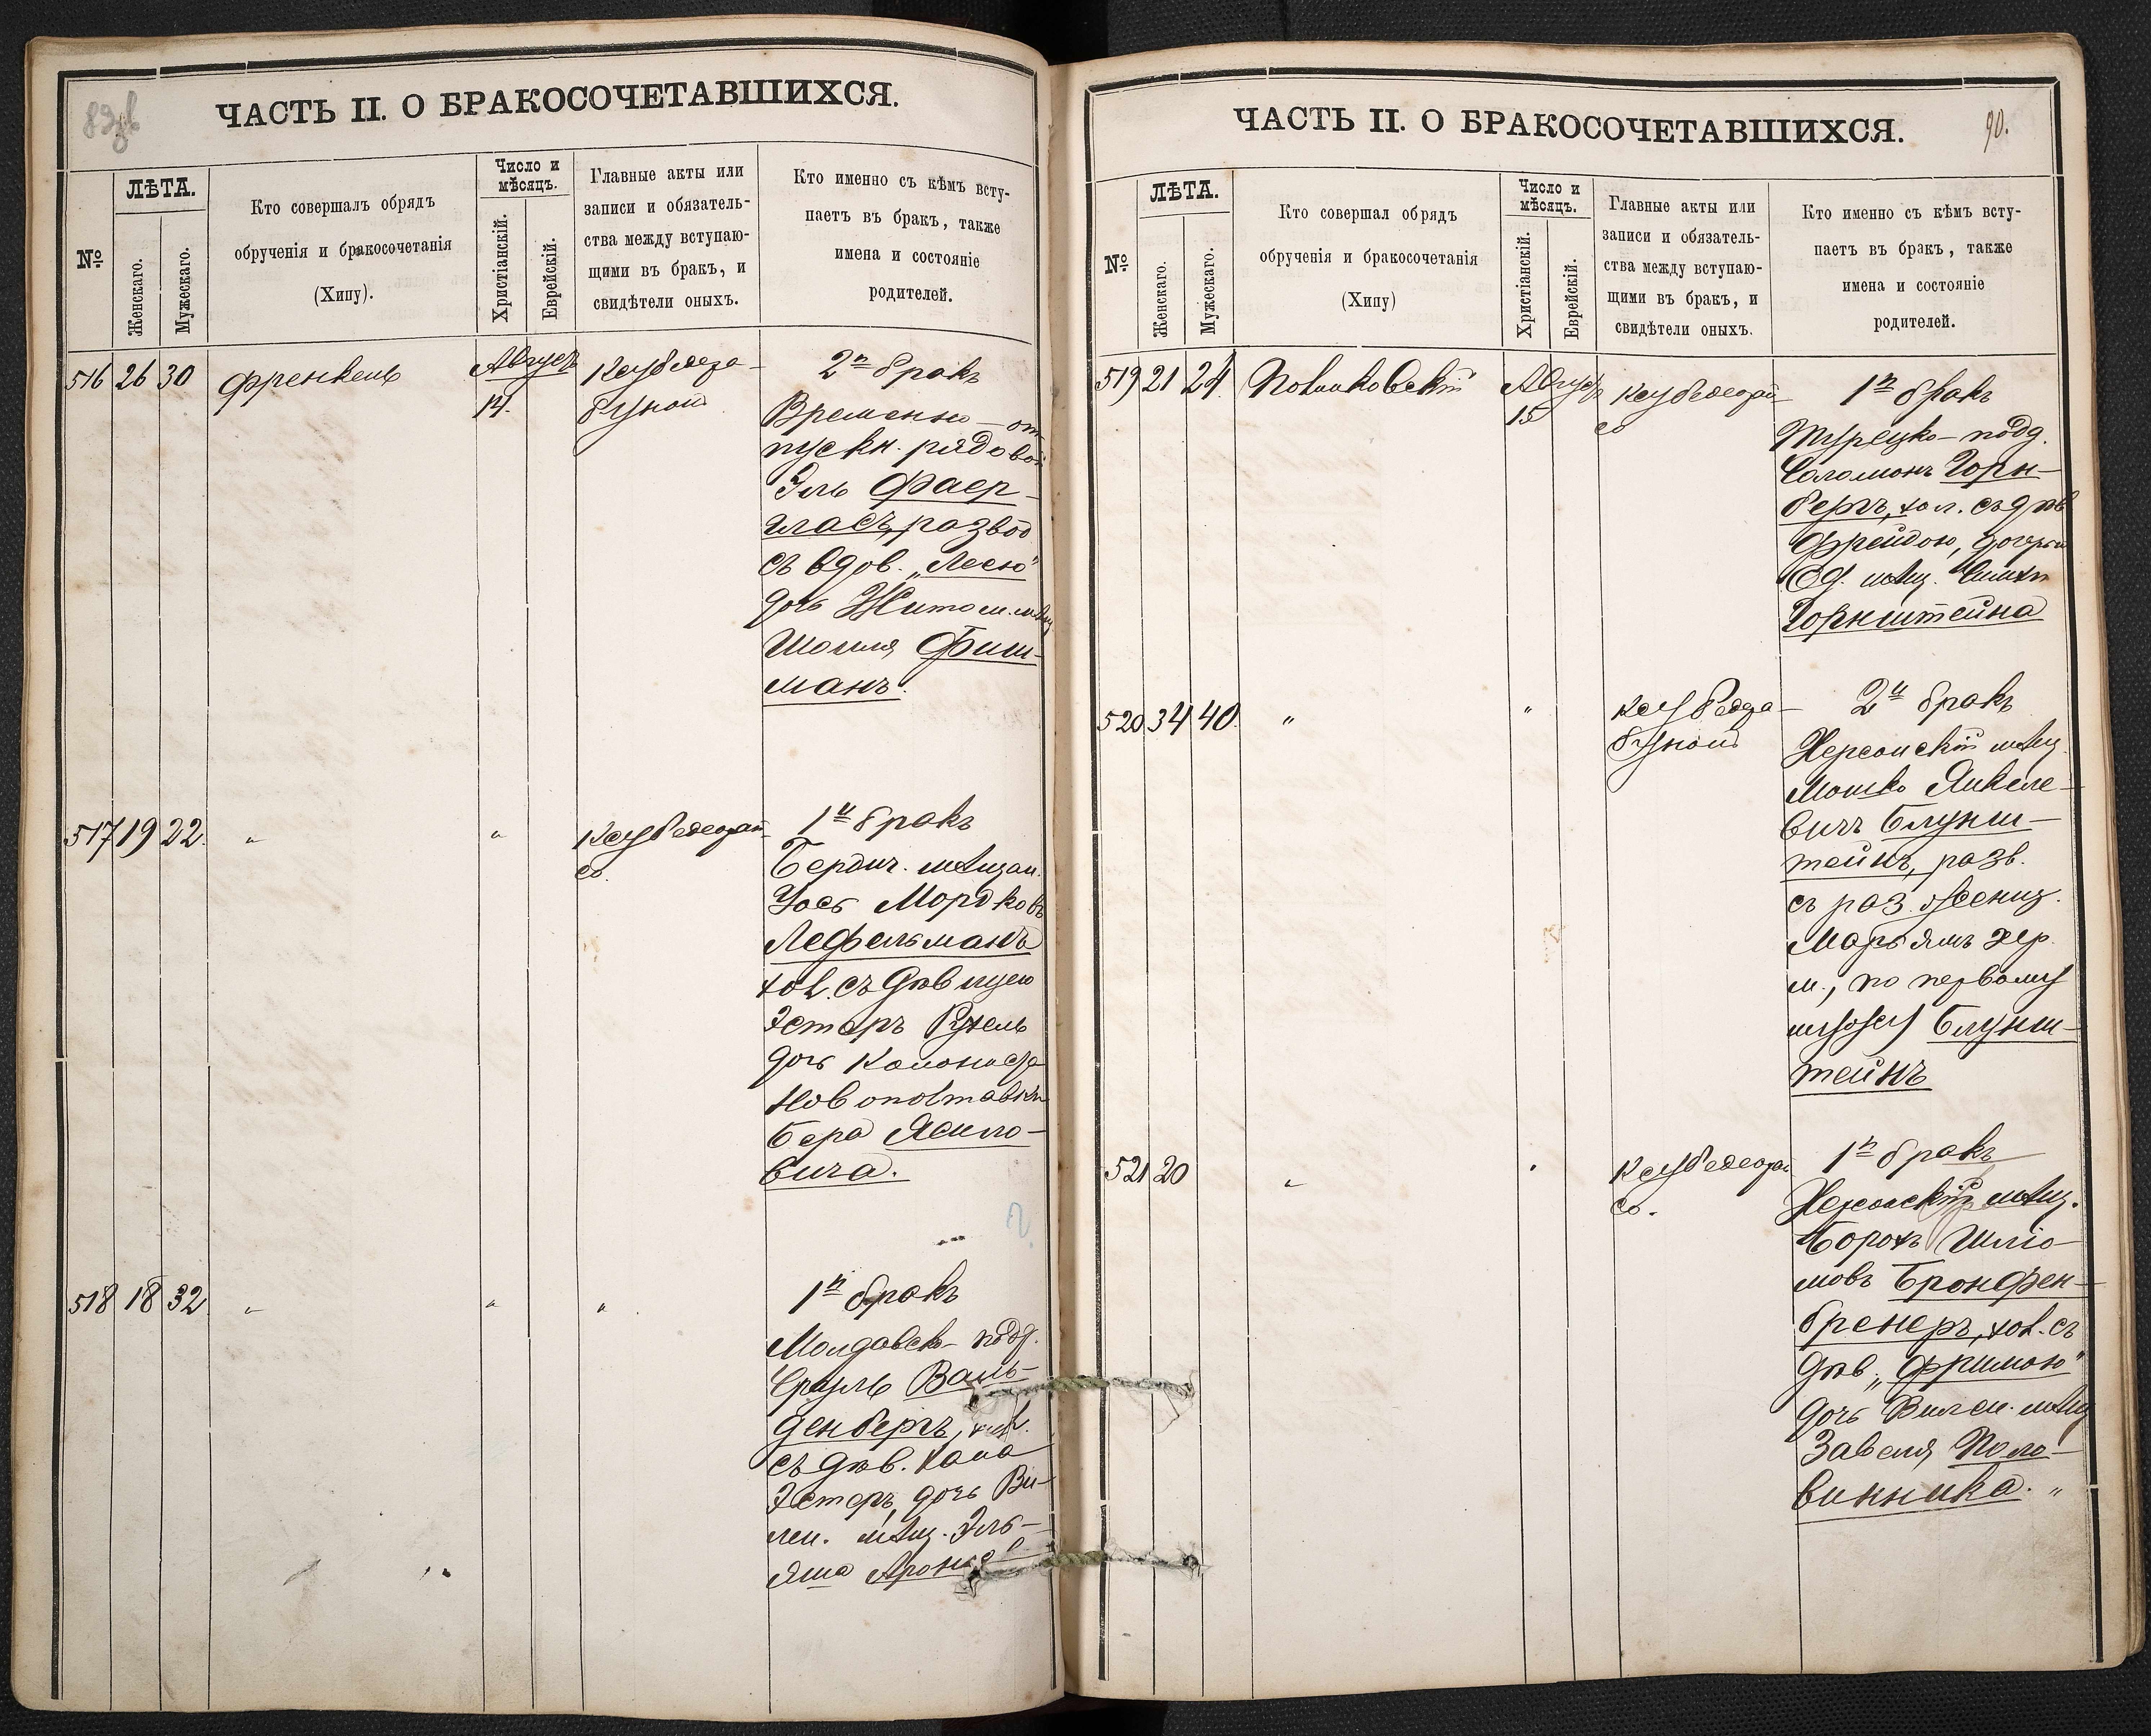 ЧАСТЬ II. О БРАКОСОЧЕТАВШИХСЯ.
№
ЛѢТА.
Женскаго.
Мужескаго.
Кто совершалъ обрядъ
обрученія и бракосочетанія
(Хипу).
Число и
мѣсяцъ.
Христіанскій.
Еврейскій.
Главные акты или
записи и обязатель-
ства между вступаю-
щими въ бракъ, и
свидѣтели оныхъ.
Кто именно съ кѣмъ всту-
паетъ въ бракъ, также
имена и состояніе
родителей.
516 26 30 Френкель Август 14.
2й бракъ
Временно-от-
пускн. рядовой
Эль Фаер-
гласъ, развод
съ вдов. „Лесю"
дочь Житом. мѣщ
Шмиля Фиш-
манъ.
517 19 22. " "
1й бракъ
Бердич. мѣщан.
Іось Мордков
Лефельманъ
хол. съ дѣвицею
Эстеръ Рухель
дочь Колониста
Новополтавки
Бера Ясино-
вича.
?
518 18 32 " " "
1й бракъ
Молдавск- подд.
Сруль Валь-
денбергъ, хол.
съ дѣв. Хана
Эстеръ, дочь Ви-
лен. мѣщ. Эль-
яша
ЧАСТЬ II. О БРАКОСОЧЕТАВШИХСЯ.
90.
№
ЛѢТА.
Женскаго.
Мужескаго.
Кто совершал обрядъ
обрученія и бракосочетанія
(Хипу)
Число и
мѣсяцъ.
Христіанскій.
Еврейскій.
Главные акты или
записи и обязатель-
ства между вступаю-
щими въ бракъ, и
свидѣтели оныхъ.
Кто именно съ кѣмъ всту-
паетъ въ бракъ, также
имена и состояніе
родителей.
519 21 24. Полиновскій Август 15
1й бракъ
Турецко- подд.
Соломонъ Горн-
бергъ, хол. съ дѣв
Фрейдою, дочерью
Од. мѣщ. Симхи
Горнштейна
520 34 40. " "
2й бракъ
Херсонскій мѣщ.
Мошко Янкеле-
вичъ Блунш-
тейнъ, разв.
съ раз. женщ.
Марьямъ хер.
м., по первому
мужу Блунш-
тейнъ
521 20 " "
1й бракъ
Херсонскій мѣщ.
Борохъ Шліо-
мовъ Бронфен-
бренеръ, хол. съ
дѣв „Фримою"
дочь Вилен. мѣщ
Завеля Поло-
винника. "